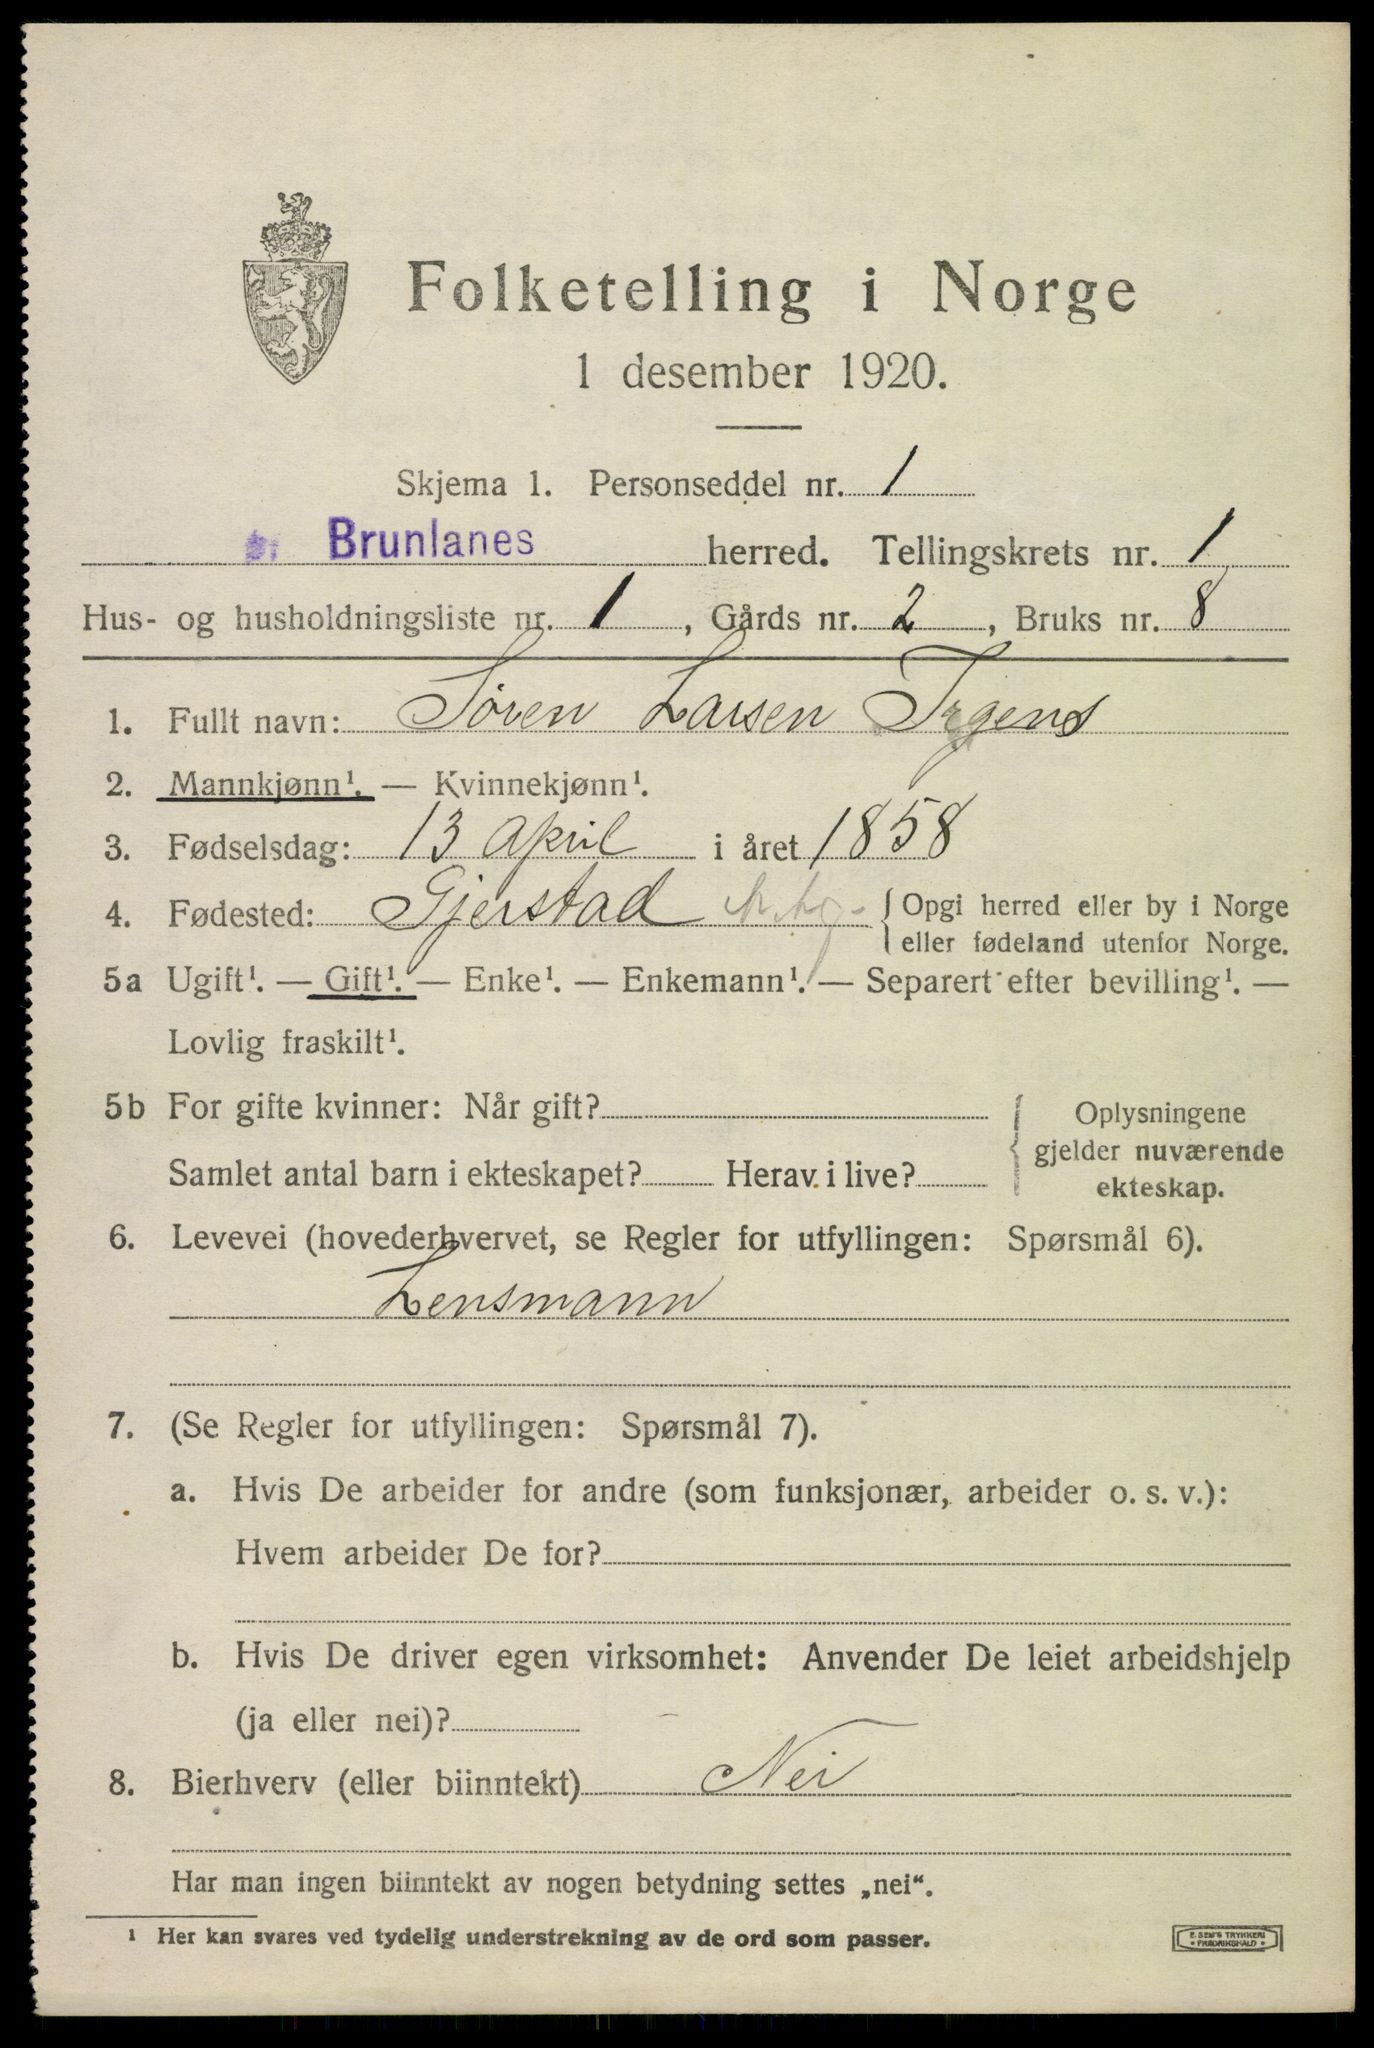 Folketelling i Norge
1 desember 1920.
Skjema 1. Personseddel nr. 1
Brunlanes herred. Tellingskrets nr. 1
Hus- og husholdningsliste nr. 1, Gårds nr. 2, Bruks nr. 8
1. Fullt navn: Søren Larsen Irgens
2. Mannkjønn¹. — Kvinnekjønn¹.
3. Fødselsdag: 13 april i året 1858
4. Fødested: Gjerstad { Opgi herred eller by i Norge
eller fødeland utenfor Norge.
5a Ugift¹. — Gift¹. — Enke¹. — Enkemann¹. — Separert efter bevilling¹. —
Lovlig fraskilt¹.
5b For gifte kvinner: Når gift?
Samlet antal barn i ekteskapet? Herav i live?
{ Oplysningene
gjelder nuværende
ekteskap.
6. Levevei (hovederhvervet, se Regler for utfyllingen: Spørsmål 6).
Lensmann
7. (Se Regler for utfyllingen: Spørsmål 7).
a. Hvis De arbeider for andre (som funksjonær, arbeider o. s. v.):
Hvem arbeider De for?
b. Hvis De driver egen virksomhet: Anvender De leiet arbeidshjelp
(ja eller nei)?
8. Bierhverv (eller biinntekt) Nei
Har man ingen biinntekt av nogen betydning settes „nei“.
¹ Her kan svares ved tydelig understrekning av de ord som passer.
E. SEM'S TRYKKERI
• FREDRIKSHALD •